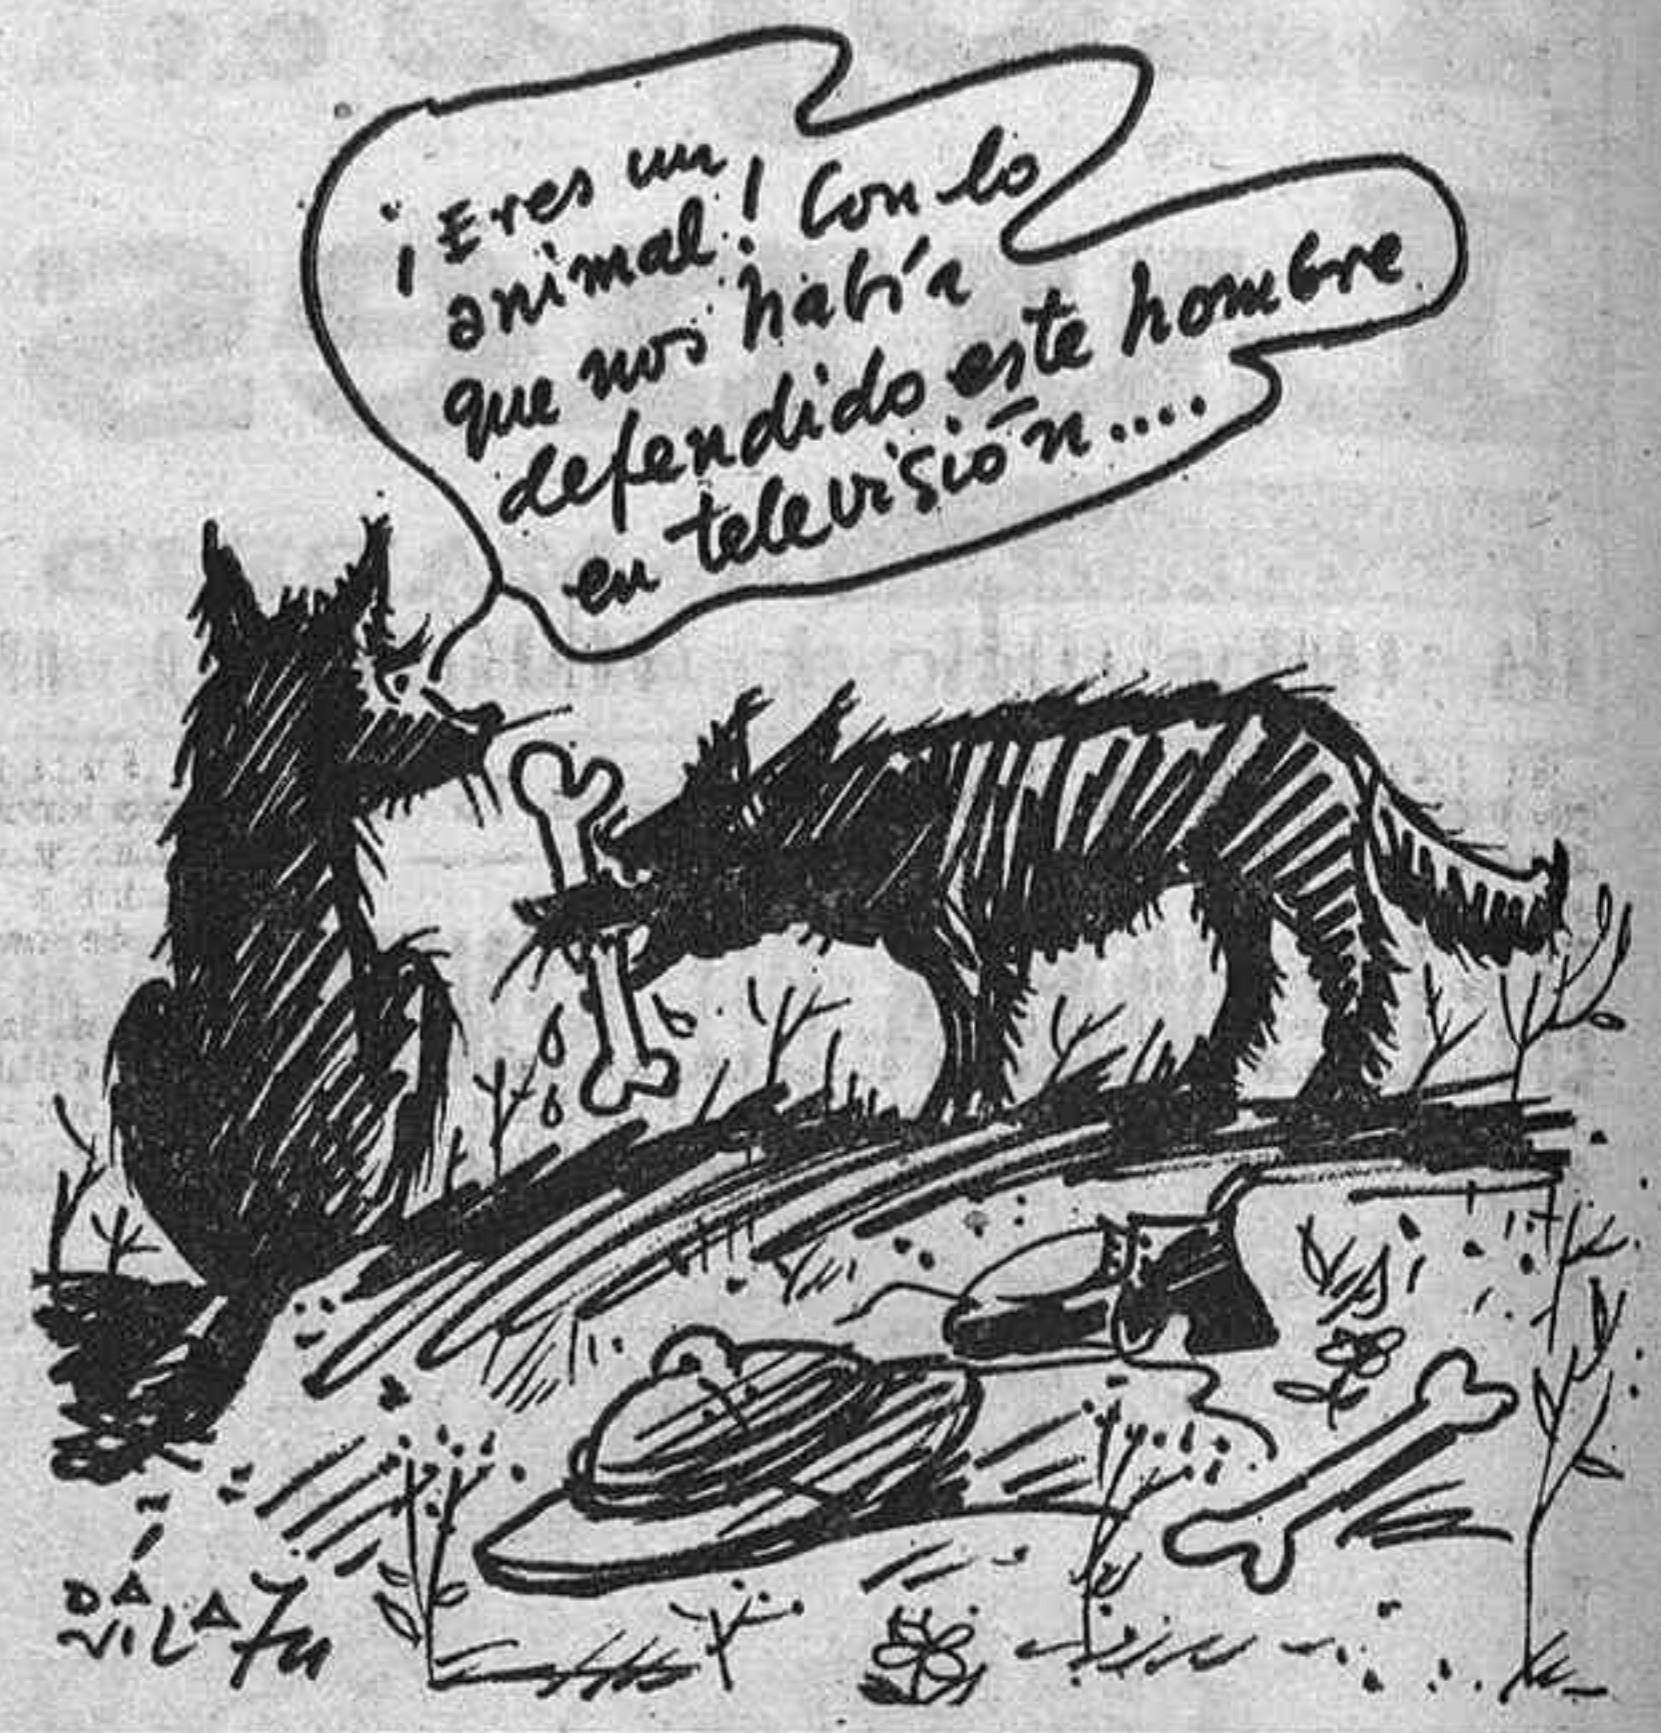 ¡Eres un
animal! Con lo
que nos había
defendido este hombre
en televisión....
DÁVILA